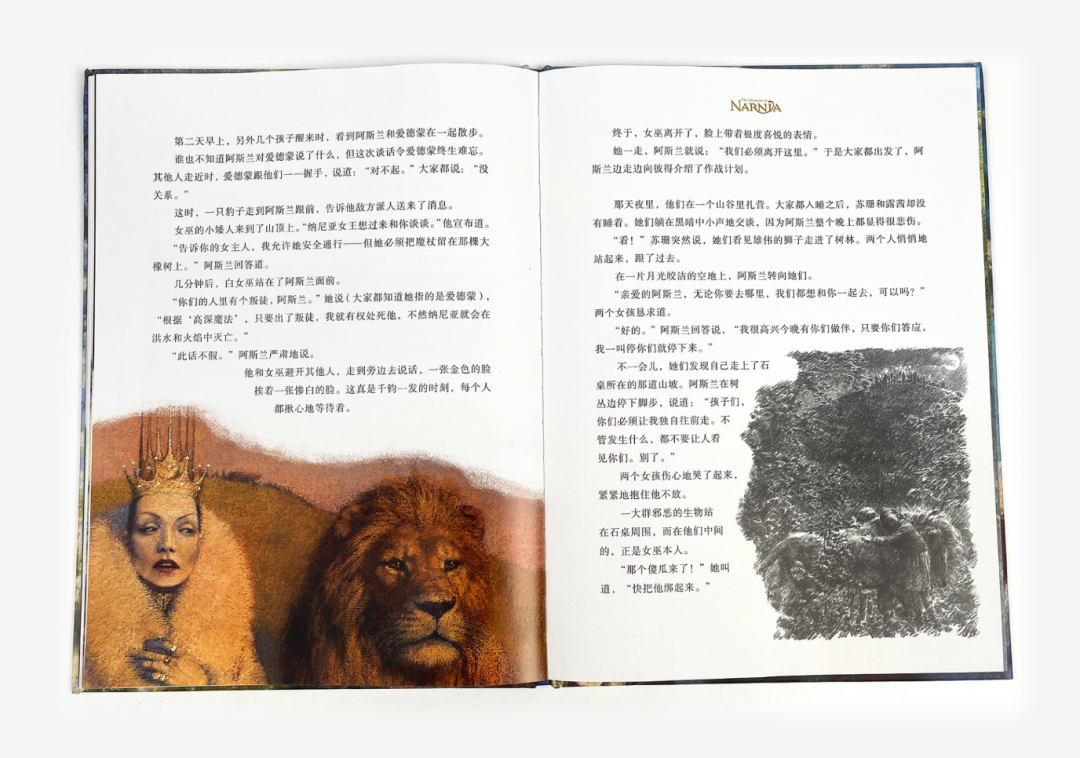 第二天早上，另外几个孩子醒来时，看到阿斯兰和爱德蒙在一起散步。
谁也不知道阿斯兰对爱德蒙说了什么，但这次谈话令爱德蒙终生难忘。
其他人走近时，爱德蒙跟他们一一握手，说道：“对不起。”大家都说：“没
关系。”
这时，一只豹子走到阿斯兰跟前，告诉他敌方派人送来了消息。
女巫的小矮人来到了山顶上。“纳尼亚女王想过来和你谈谈。”他宣布道。
“告诉你的女主人，我允许她安全通行——但她必须把魔杖留在那棵大
橡树上。”阿斯兰回答道。
几分钟后，白女巫站在了阿斯兰面前。
“你们的人里有个叛徒，阿斯兰。”她说（大家都知道她指的是爱德蒙），
“根据‘高深魔法’，只要出了叛徒，我就有权处死他，不然纳尼亚就会在
洪水和火焰中灭亡。”
“此话不假。”阿斯兰严肃地说。
他和女巫避开其他人，走到旁边去说话，一张金色的脸
挨着一张惨白的脸。这真是千钧一发的时刻，每个人
都揪心地等待着。
THE CHRONICLES OF
NARNIA
终于，女巫离开了，脸上带着极度喜悦的表情。
她一走，阿斯兰就说：“我们必须离开这里。”于是大家都出发了，阿
斯兰边走边向彼得介绍了作战计划。
那天夜里，他们在一个山谷里扎营。大家都入睡之后，苏珊和露茜却没
有睡着。她们躺在黑暗中小声地交谈，因为阿斯兰整个晚上都显得很悲伤。
“看！”苏珊突然说，她们看见雄伟的狮子走进了树林。两个人悄悄地
站起来，跟了过去。
在一片月光皎洁的空地上，阿斯兰转向她们。
“亲爱的阿斯兰，无论你要去哪里，我们都想和你一起去，可以吗？”
两个女孩恳求道。
“好的。”阿斯兰回答说，“我很高兴今晚有你们做伴，只要你们答应，
我一叫停你们就停下来。”
不一会儿，她们发现自己走上了石
桌所在的那道山坡。阿斯兰在树
丛边停下脚步，说道：“孩子们，
你们必须让我独自往前走。不
管发生什么，都不要让人看
见你们。别了。”
两个女孩伤心地哭了起来，
紧紧地抱住他不放。
一大群邪恶的生物站
在石桌周围，而在他们中间
的，正是女巫本人。
“那个傻瓜来了！”她叫
道，“快把他绑起来。”